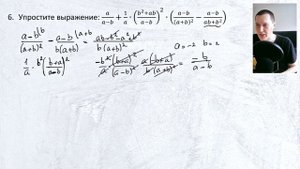 6. Упростите выражение: a/(a-b) + 1/a · ((b²+ab)/(a-b))² · ((a-b)/(a+b)² - (a-b)/(ab+b²))
(a-b)\b/(a+b)² - (a-b)\a+b/(b(a+b)) = (ab-b²-a²+b²)/(b(a+b)²) a=-2 b=2
1/a · b²((b+a)/(a-b))² -b² · (b+a)²/(a(a-b)²) · a(a-b)/(b(a+b)²) = -b/(a-b)